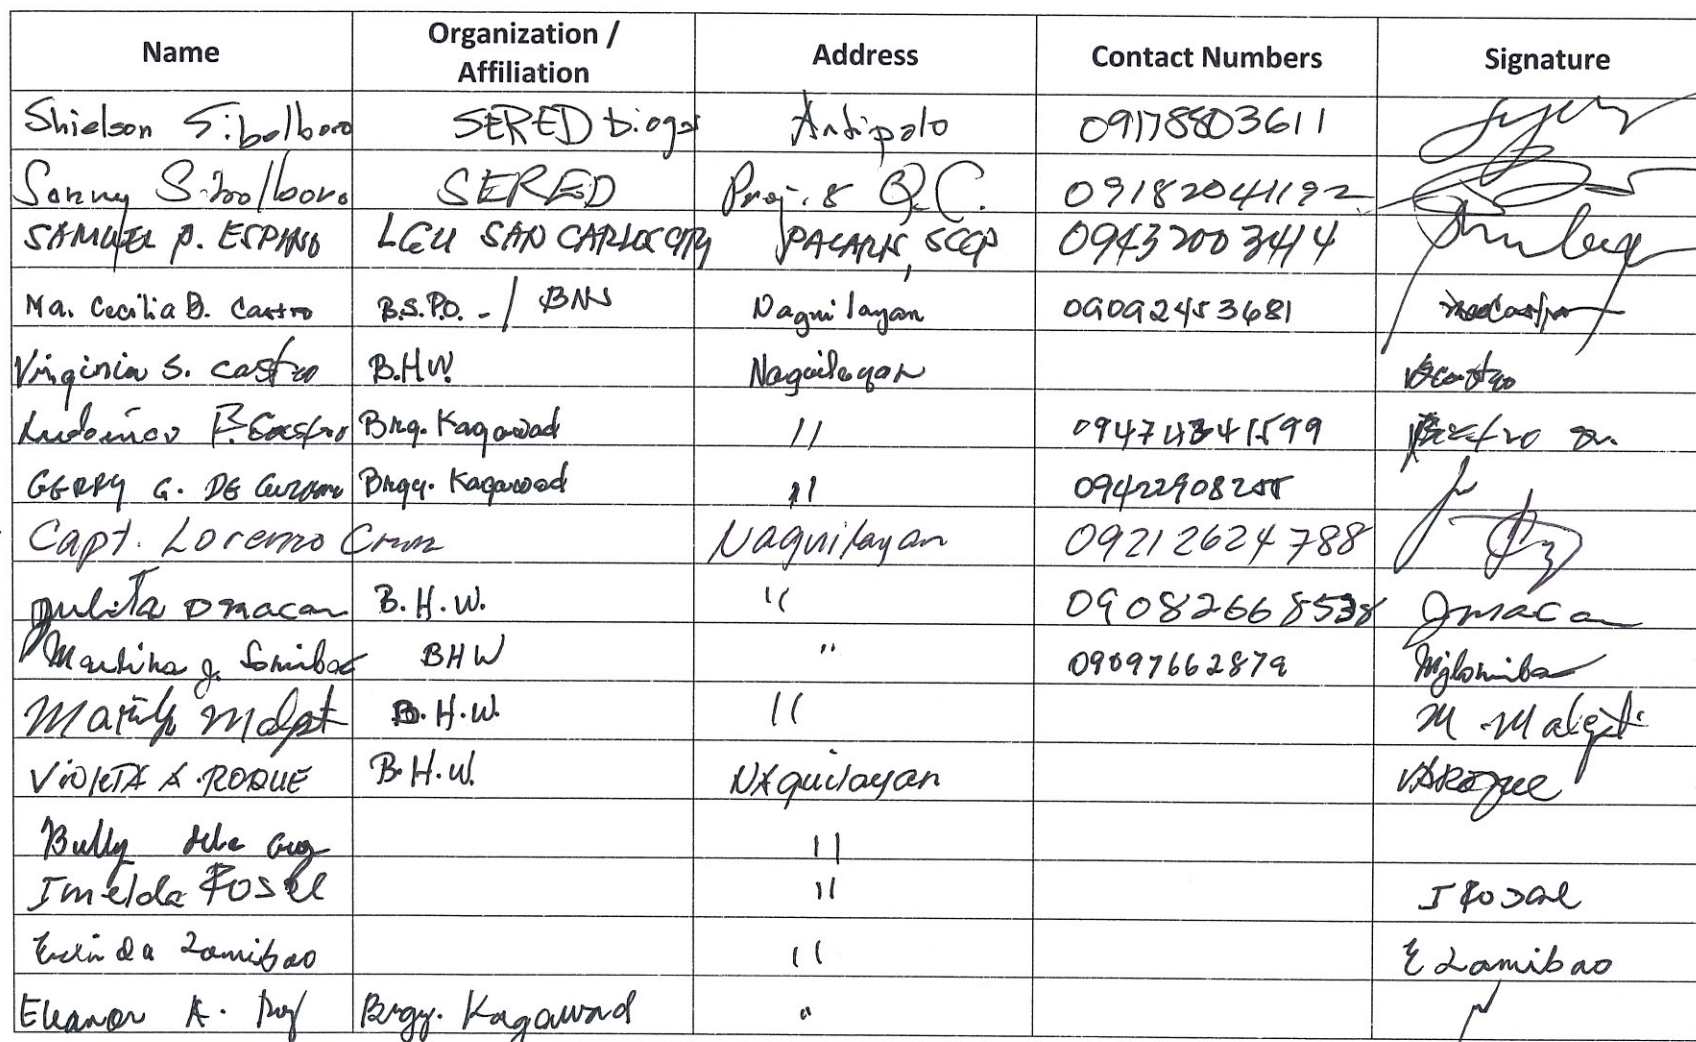 Name Organization / Affiliation Address Contact Numbers Signature
Shielson Sibolboro SERED biogas Antipolo 09178803611
Sonny Sibolboro SERED Proj. 8 Q.C. 09182041192
SAMUEL P. ESPINO LGU SAN CARLOS CITY 09432003414
Ma. Cecilia B. Castro B.S.P.O. - / BNS Naguilayan 09092453681
Virginia S. Castro B.H.W. Naguilayan VSCastro
F. Castro Brg. Kagawad "
GERRY G. DE Guzman Brgy. Kagawad " 09422908255
Capt. Lorenzo Cruz Naguilayan 09212624788
Julita Omacan B.H.W. " 09082668538 JOmacan
Martina J. Lomibao BHW " 09097662879 MJLomibao
B.H.W. " M.
VIOLETA A. ROQUE B.H.W. NAguilayan VARoque
Bully dela Cruz "
Imelda Rosal " I Rosal
Erlinda Lamibao " E Lamibao
Eleanor A. Brgy. Kagawad "